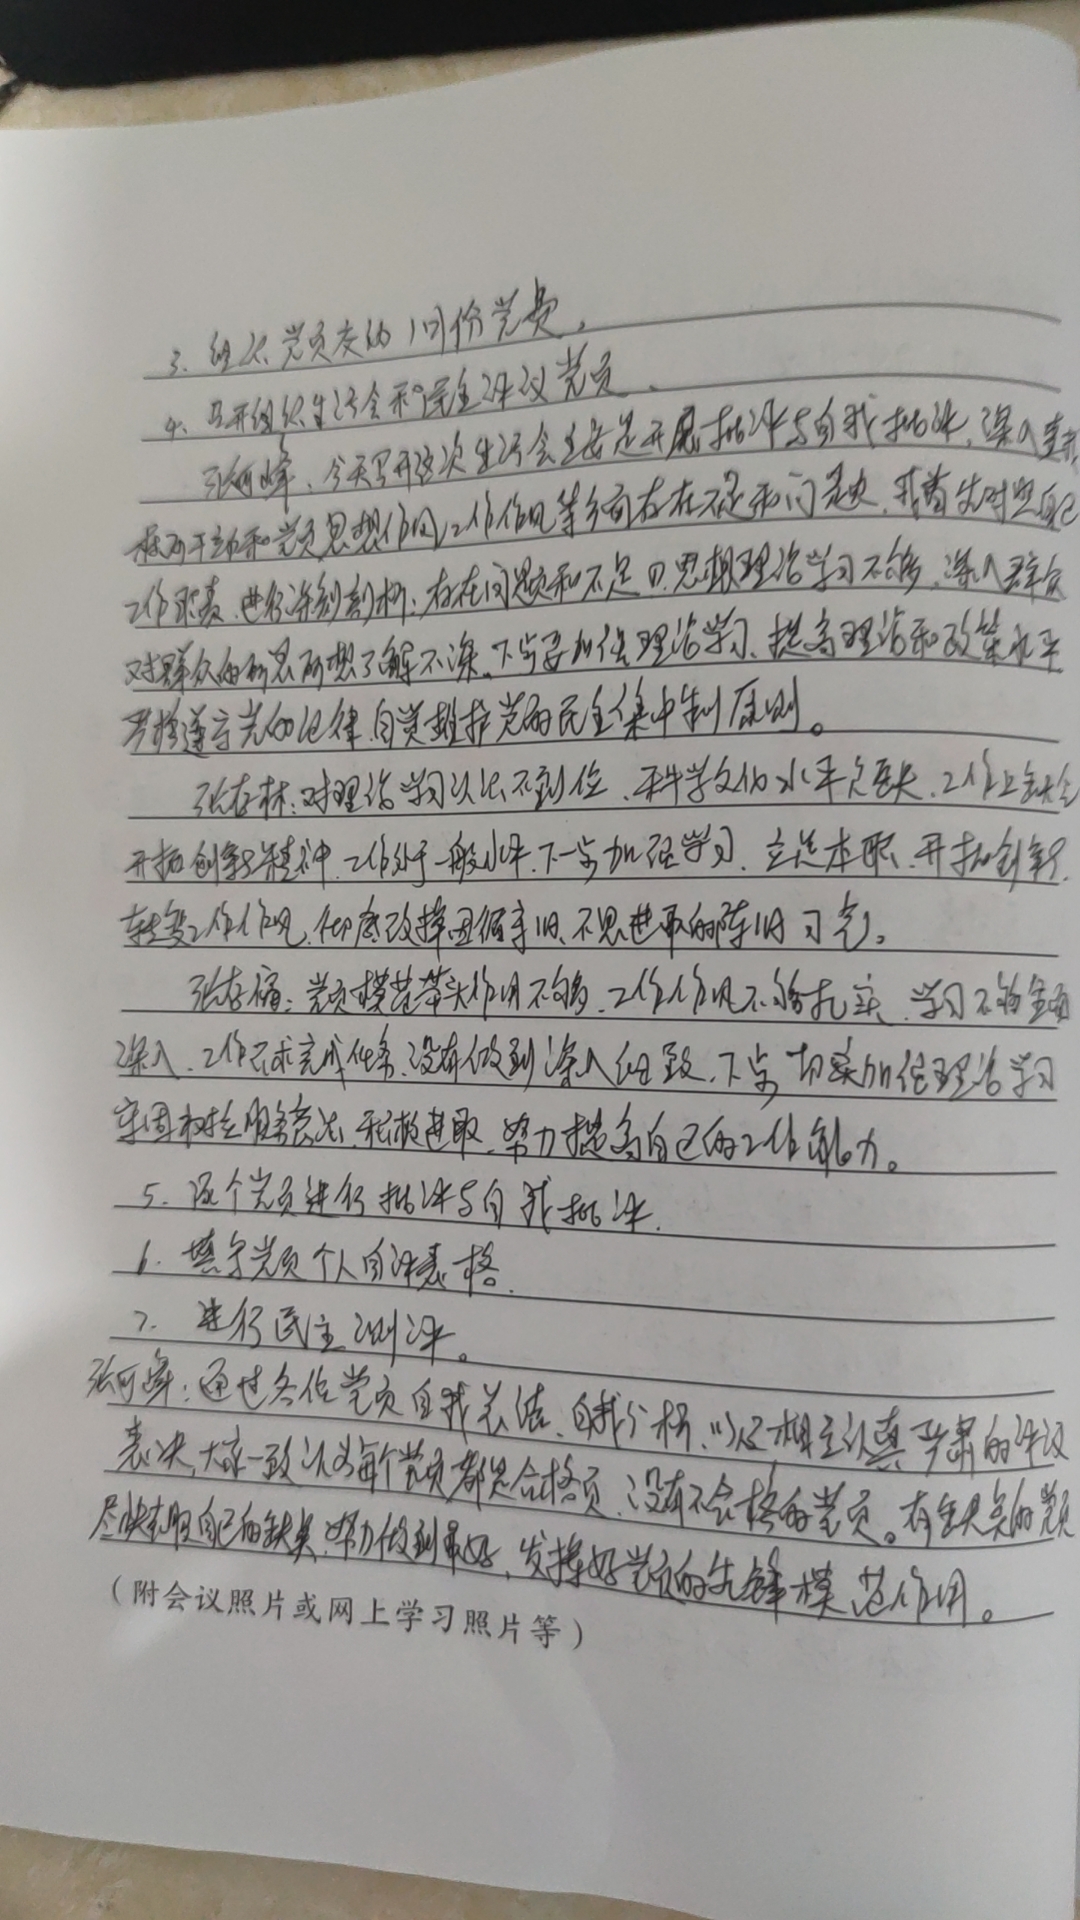 3、组织党员交纳1月份党费。
4、召开组织生活会和民主评议党员、
张何峰、今天召开这次生活会主要是开展批评与自我批评,深入查找
和党员思想作风,工作作风等方面存在不足和问题,我首先对照自己
工作职责、进行深刻剖析:存在问题和不足①、思想理论学习不够、深入群众
对群众的所思所想了解不深。下步要加强理论学习、提高理论和政策水平
严格遵守党的纪律、自觉维护党的民主集中制原则。
张存林:对理论学习认识不到位、科学文化水平欠缺、工作上缺乏
开拓创新精神、工作处于一般水平、下一步加强学习、立足本职、开拓创新、
转变工作作风、彻底改掉因循守旧、不思进取的陈旧习气。
张存宿:党员模范带头作用不够、工作作风不够扎实、学习不够全面
深入、工作只求完成任务、没有做到深入细致、下步切实加强理论学习
牢固树立服务意识、积极进取、努力提高自己的工作能力。
5、逐个党员进行批评与自我批评、
6、填写党员个人自评表格、
7、进行民主测评。
张何峰:通过各位党员自我总结、自我分析、以及相互认真严肃的评议
表决、大家一致认为每个党员都是合格党员、没有不合格的党员。有缺点的党员
尽快克服自己的缺点、努力做到最好,发挥好党员的先锋模范作用。
(附会议照片或网上学习照片等)